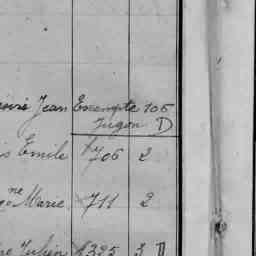 Jean Exempte 105
Jugon D
Emile 706 2
ne Marie 711 2
Julien 1325 3 D